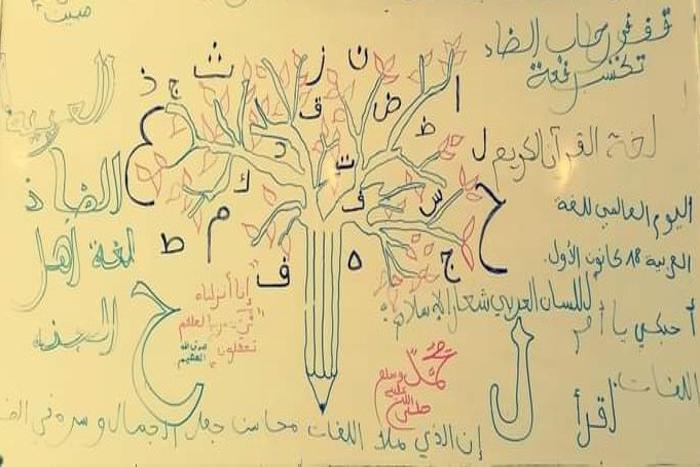 قف في رحاب الضاد
تكسب رفعة
لغة القرآن الكريم
اليوم العالمي للغة
العربية 18 كانون الأول.
اللسان العربي شعار الإسلام
أحبكي يا أم
اللغات
اقرأ
العربية
الضاد
لغة أهل
إنا أنزلناه
تعقلون
صدق الله
العظيم
محمد
صلى الله عليه وسلم
ث
ذ
ج
ز
ن
ق
ض
ا
ظ
ل
د
ت
ع
ك
ف
س
ح
م
ط
ف
ه
ج
ح
ل
إن الذي ملأ اللغات محاسن جعل الجمال وسره في الضا